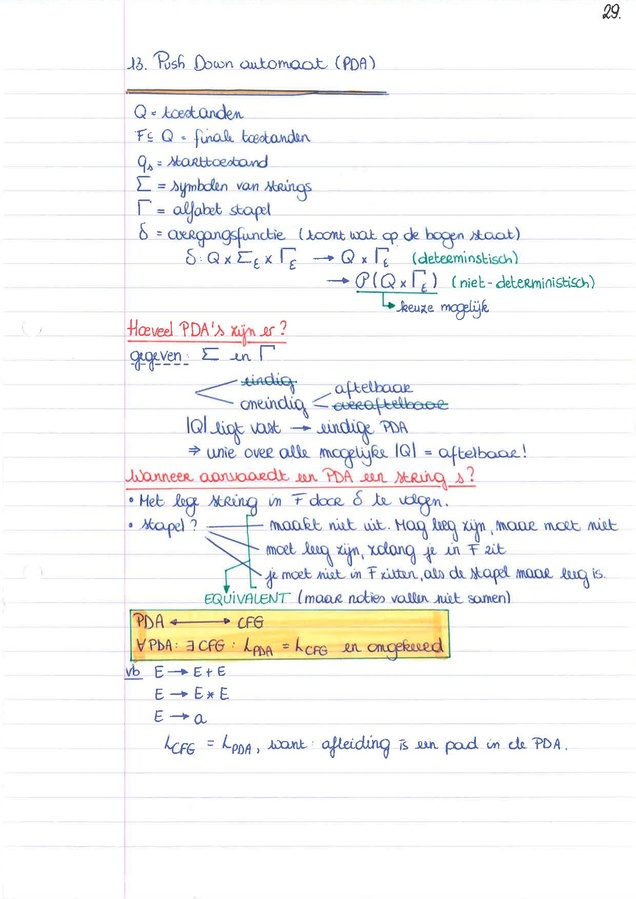 29.
13. Push Down automaat (PDA)
Q = toestanden
F ⊆ Q = finale toestanden
qₛ = starttoestand
Σ = symbolen van strings
Γ = alfabet stapel
δ = overgangsfunctie (toont wat op de bogen staat)
δ: Q × Σ_ε × Γ_ε → Q × Γ_ε (determinstisch)
→ P(Q × Γ_ε) (niet-deterministisch)
↳ keuze mogelijk
Hoeveel PDA's zijn er?
gegeven: Σ en Γ
eindig
aftelbaar
oneindig
overaftelbaar
|Q| ligt vast → eindige PDA
⇒ unie over alle mogelijke |Q| = aftelbaar!
Wanneer aanvaardt een PDA een string s?
• Met lege string in F door δ te volgen.
• stapel? maakt niet uit. Mag leeg zijn, maar moet niet
moet leeg zijn, zolang je in F zit
je moet niet in F zitten, als de stapel maar leeg is.
EQUIVALENT (maar noties vallen niet samen)
PDA ↔ CFG
∀ PDA: ∃ CFG: L_PDA = L_CFG en omgekeerd
vb E → E + E
E → E * E
E → a
L_CFG = L_PDA, want: afleiding is een pad in de PDA.